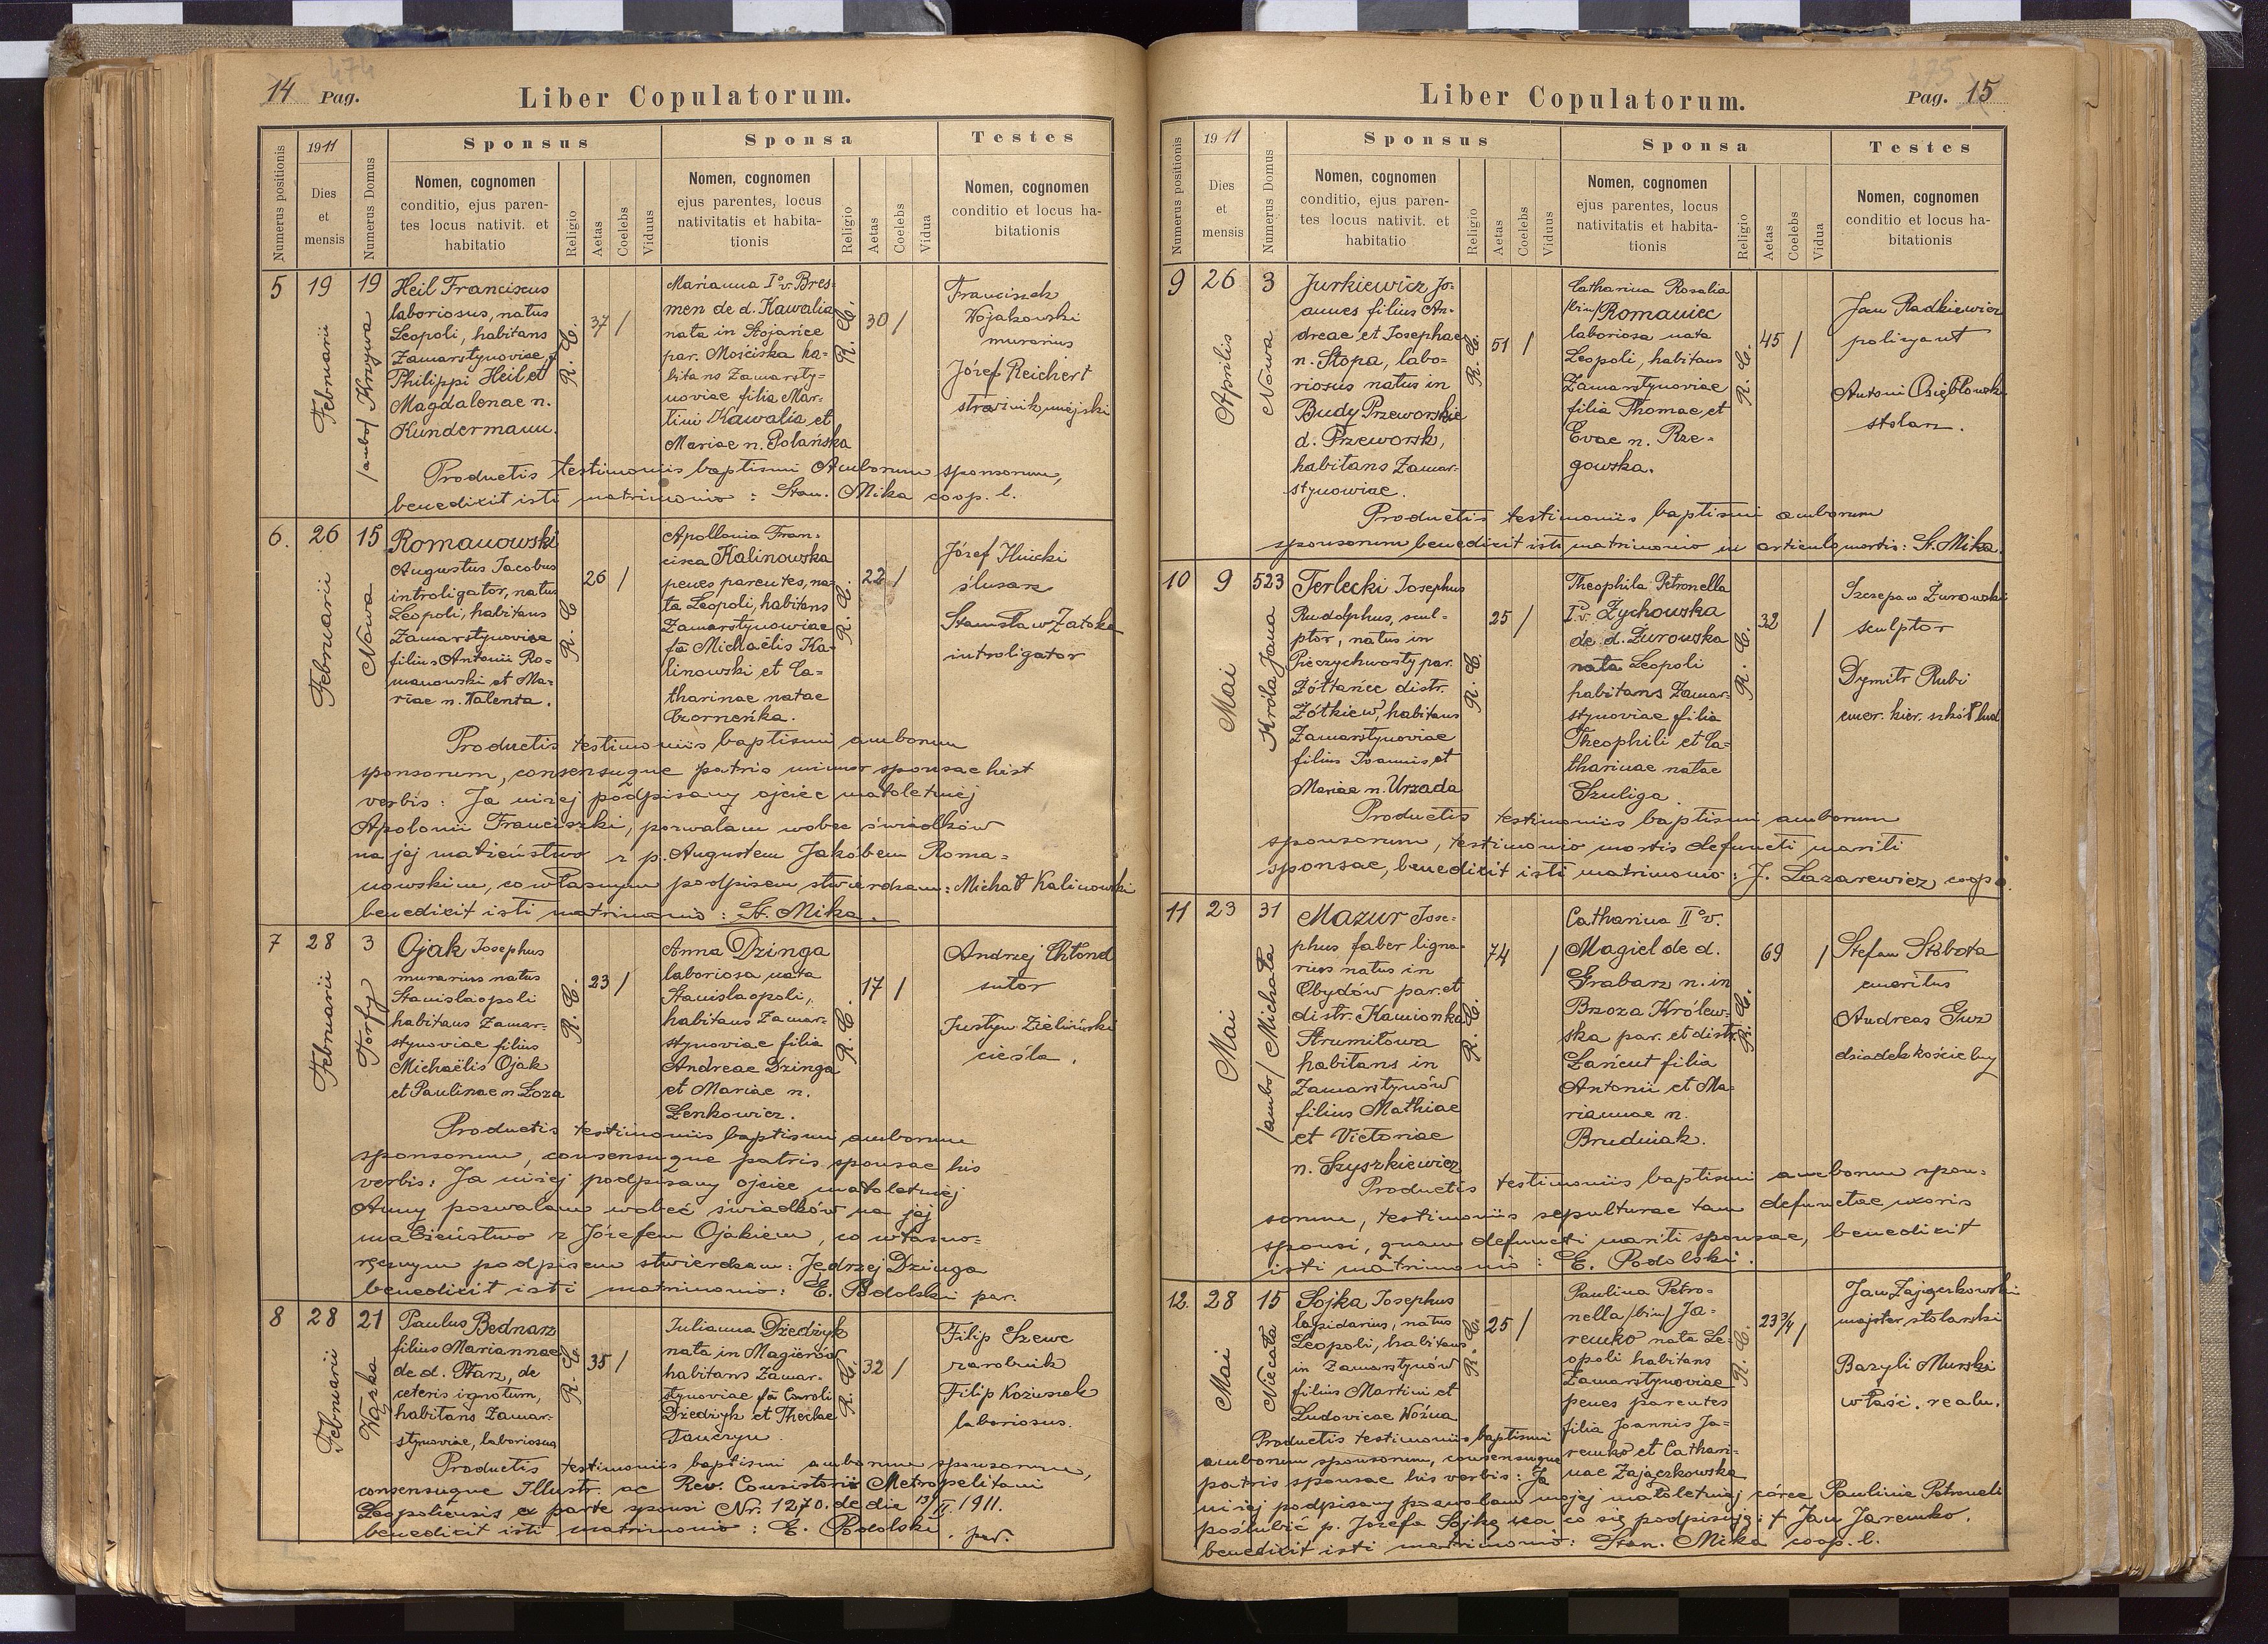 474
14 Pag.
Liber Copulatorum.
Numerus positionis
1911
Dies
et
mensis
Numerus Domus
Sponsus
Nomen, cognomen
conditio, ejus paren-
tes locus nativit. et
habitatio
Religio
Aetas
Coelebs
Viduus
Sponsa
Nomen, cognomen
ejus parentes, locus
nativitatis et habita-
tionis
Religio
Aetas
Coelebs
Vidua
Testes
Nomen, cognomen
conditio et locus ha-
bitationis
5
19
Februarii
19
/ambo/ Krzywa
Heil Franciscus
laboriosus, natus
Leopoli, habitans
Zamarstynoviae, f.
Philippi Heil et
Magdalenae n.
Kundermann.
R. C.
37 /
Marianna I° v. Bres-
men de d. Kawalia
nata in Stojańce
par. Mościska ha-
bitans Zamarsty-
noviae filia Mar-
tini Kawalia et
Mariae n. Polańska
R. C.
30 /
Franciszek
Wojakowski
murarius
Józef Reichert
strażnik miejski
Productis testimoniis baptismi Amborum sponsorum,
benedixit isti matrimonio : Stan. Mika coop. l.
6.
26
Februarii
15
Nowa
Romanowski
Augustus Jacobus
introligator, natus
Leopoli, habitans
Zamarstynoviae
filius Antonii Ro-
manowski et Ma-
riae n. Kalenta.
R. C.
26 /
Apollonia Fran-
cisca Kalinowska
penes parentes, na-
ta Leopoli, habitans
Zamarstynowiae
fa Michaëlis Ka-
linowski et Ca-
tharinae natae
Czorneńka.
R. C.
22 /
Józef Ilnicki
ślusarz
Stanisław Zatoka
introligator
Productis testimoniis baptismi amborum
sponsorum, consensuque patris minor sponsae hist
verbis: Ja niżej podpisany ojciec małoletniej
Apolonii Franciszki, pozwalam wobec świadków
na jej małżeństwo z p. Augustem Jakóbem Roma-
nowskim, co własnym podpisem stwierdzam: Michał Kalinowski
benedixit isti matrimonio : St. Mika.
7
28
Februarii
3
Torfy
Ojak Josephus
murarius natus
Stanislaopoli
habitans Zamar-
stynoviae filius
Michaëlis Ojak
et Paulinae n. Łoza
R. C.
23 /
Anna Dzinga
laboriosa nata
Stanislaopoli,
habitans Zamar-
stynoviae filia
Andreae Dzinga
et Mariae n.
Zenkowicz.
R. C.
17 /
Andrzej Chłond
sutor
Justyn Zieliński
cieśla.
Productis testimoniis baptismi amborum
sponsorum, consensuque patris sponsae his
verbis: Ja niżej podpisany ojciec małoletniej
Anny pozwalam wobec świadków na jej
małżeństwo z Józefem Ojakiem, co własno-
ręcznym podpisem stwierdzam: Jędrzej Dzinga
benedixit isti matrimonio: E. Podolski par.
8
28
Februarii
21
Wązka
Paulus Bednarz
filius Mariannae
de d. Ptarz, de
ceteris ignotum,
habitans Zamar-
stynoviae, laboriosus
R. C.
35 /
Julianna Dzedzyk
nata in Magierów
habitans Zamar-
stynoviae fa Caroli
Dzedzyk et Theclae
Tanczyn.
R. C.
32 /
Filip Szewc
zarobnik
Filip Kozuszek
laboriosus.
Productis testimoniis baptismi amborum sponsorum,
consensuque Illustr. ac Rev. Consistorii Metropolitani
Leopoliensis ex parte sponsi Nr. 1270. de die 13/II. 1911.
benedixit isti matrimonio : E. Podolski, par.
475
Liber Copulatorum.
Pag. 15
Numerus positionis
1911
Dies
et
mensis
Numerus Domus
Sponsus
Nomen, cognomen
conditio, ejus paren-
tes locus nativit. et
habitatio
Religio
Aetas
Coelebs
Viduus
Sponsa
Nomen, cognomen
ejus parentes, locus
nativitatis et habita-
tionis
Religio
Aetas
Coelebs
Vidua
Testes
Nomen, cognomen
conditio et locus ha-
bitationis
9
26
Aprilis
3
Nowa
Jurkiewicz Jo-
annes filius An-
dreae et Josephae
n. Stopa, labo-
riosus natus in
Budy Przeworskie
d. Przeworsk,
habitans Zamar-
stynowiae.
R. C.
51 /
Catharina Rosalia
/bin/ Romaniec
laboriosa nata
Leopoli, habitans
Zamarstynoviae
filia Thomae et
Evae n. Rze-
gowska.
R. C.
45 /
Jan Radkiewicz
policyant
Antoni Osiębłowski
stolarz.
Productis testimoniis baptismi amborum
sponsorum benedixit isti matrimonio in articulo mortis: St. Mika.
10
9
Mai
523
Króla Jana
Terlecki Josephus
Rudolphus, sculp-
ptor, natus in
Pieczychwosty par.
Żółtańce distr.
Żółkiew, habitans
Zamarstynoviae
filius Joannis et
Mariae n. Urzada
R. C.
25 /
Theophila Petronella
I° v. Żychowska
de d. Żurowska
nata Leopoli
habitans Zamar-
stynoviae filia
Theophili et Ca-
tharinae natae
Szuliga.
R. C.
32 /
Szczepan Żurowski
sculptor
Dymitr Rubi
emer. kier. szkół lud
Productis testimoniis baptismi amborum
sponsorum, testimonio mortis defuncti mariti
sponsae, benedixit isti matrimonio: J. Lazarewicz coop.
11
23
Mai
31
/ambo/ Michała
Mazur Jose-
phus faber ligna-
rius natus in
Obydów par. et
distr. Kamionka
Strumiłowa
habitans in
Zamarstynów
filius Mathiae
et Victoriae
n. Szyszkiewicz
R. C.
74 /
Catharina II° v.
Magiel de d.
Grabarz n. in
Brzoza Królew-
ska par. et distr.
Łańcut filia
Antonii et Ma-
riannae n.
Brudniak.
R. C.
69 /
Stefan Słobota
emeritus
Andreas Guz
dziadek kościelny
Productis testimoniis baptismi amborum spon-
sorum, testimoniis sepulturae tam defunctae uxoris
sponsi, quam defuncti mariti sponsae, benedixit
isti matrimonio : E. Podolski.
12.
28
Mai
15
Niecała
Sojka Josephus
lapidarius, natus
Leopoli, habitans
in Zamarstynów
filius Martini et
Ludovicae Woźna
R. C.
25 /
Paulina Petro-
nella /bin/ Ja-
remko nata Le-
opoli habitans
Zamarstynoviae
penes parentes
filia Joannis Ja-
remko et Cathari-
nae Zajączkowska
R. C.
23 3/4 /
Jan Zajączkowski
majster stolarski
Bazyli Murski
właść. realn.
Productis testimoniis baptismi
amborum sponsorum, consensuque
patris sponsae his verbis: Ja
niżej podpisany pozwalam mojej małoletniej córce Paulinie Petroneli
poślubić p. Józefa Sojkę na co się podpisuję: + Jan Jaremko.
benedixit isti matrimonio: Stan. Mika coop. l.